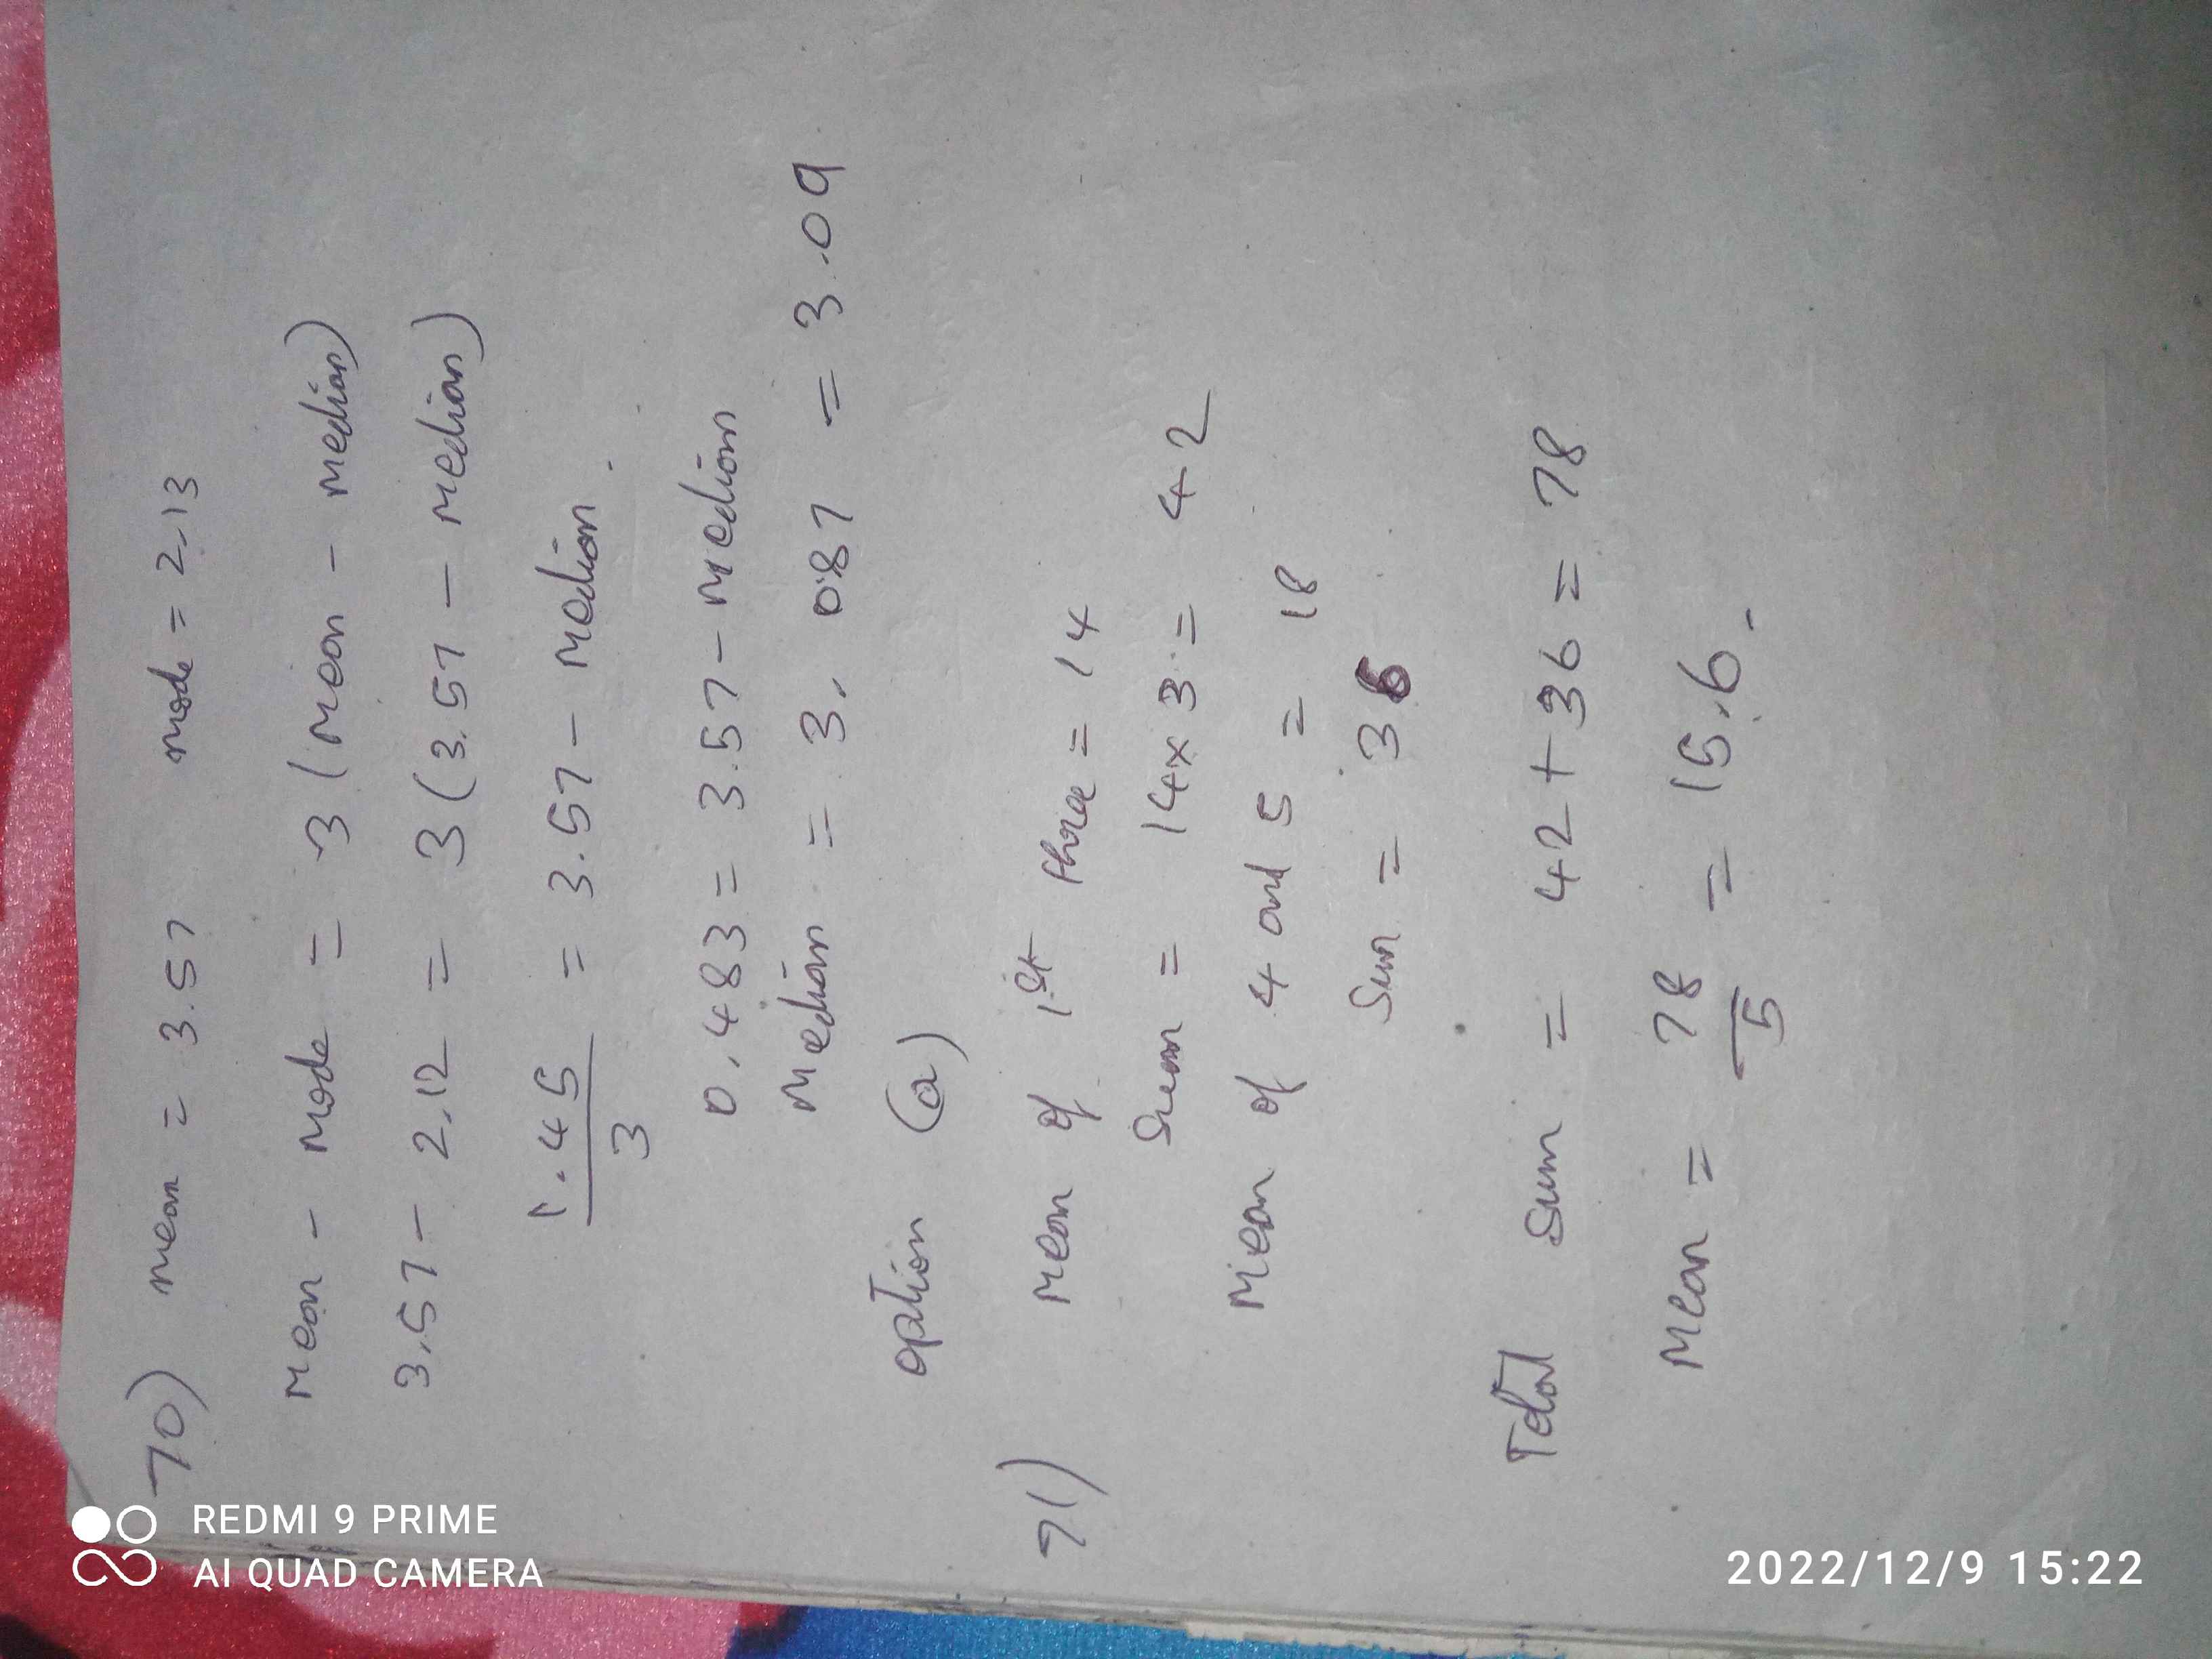 70) mean = 3.57 mode = 2.13
Mean - Mode = 3 (Mean - Median)
3.57 - 2.12 = 3 (3.57 - Median)
1.45/3 = 3.57 - Median.
0.483 = 3.57 - Median
Median = 3.087 = 3.09
option (a)
71) Mean of 1st three = 14
Sum = 14x3 = 42
Mean of 4 and 5 = 18
Sum = 36
Total Sum = 42+36 = 78
Mean = 78/5 = 15.6.
REDMI 9 PRIME
AI QUAD CAMERA
2022/12/9 15:22